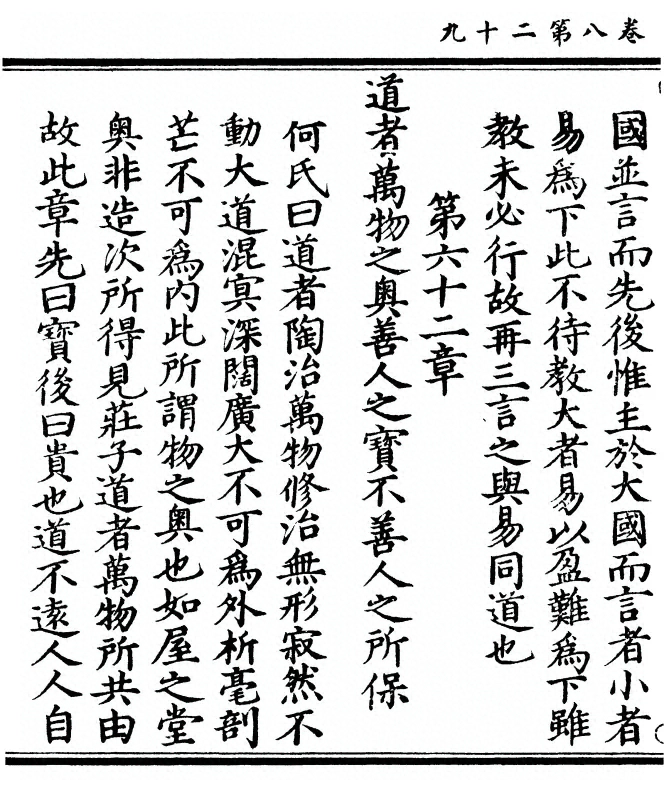 卷八第二十九
國並言而先後惟主於大國而言者小者
易爲下此不待教大者易以盈難爲下雖
教未必行故再三言之與易同道也
第六十二章
道者萬物之奧善人之寶不善人之所保
何氏曰道者陶冶萬物修治無形寂然不
動大道混冥深闊廣大不可爲外析毫剖
芒不可爲内此所謂物之奥也如屋之堂
奥非造次所得見莊子道者萬物所共由
故此章先曰寶後曰貴也道不遠人人自